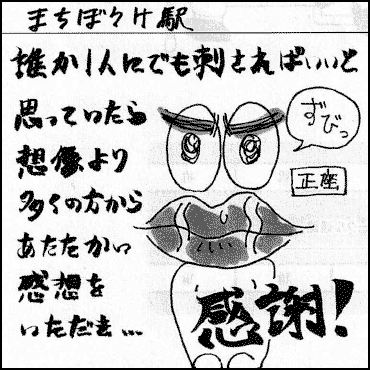 まちぼうけ駅
誰か1人にでも刺さればいいと
思っていたら
想像より
多くの方から
あたたかい
感想を
いただき…
ずびっ
正座
感謝!